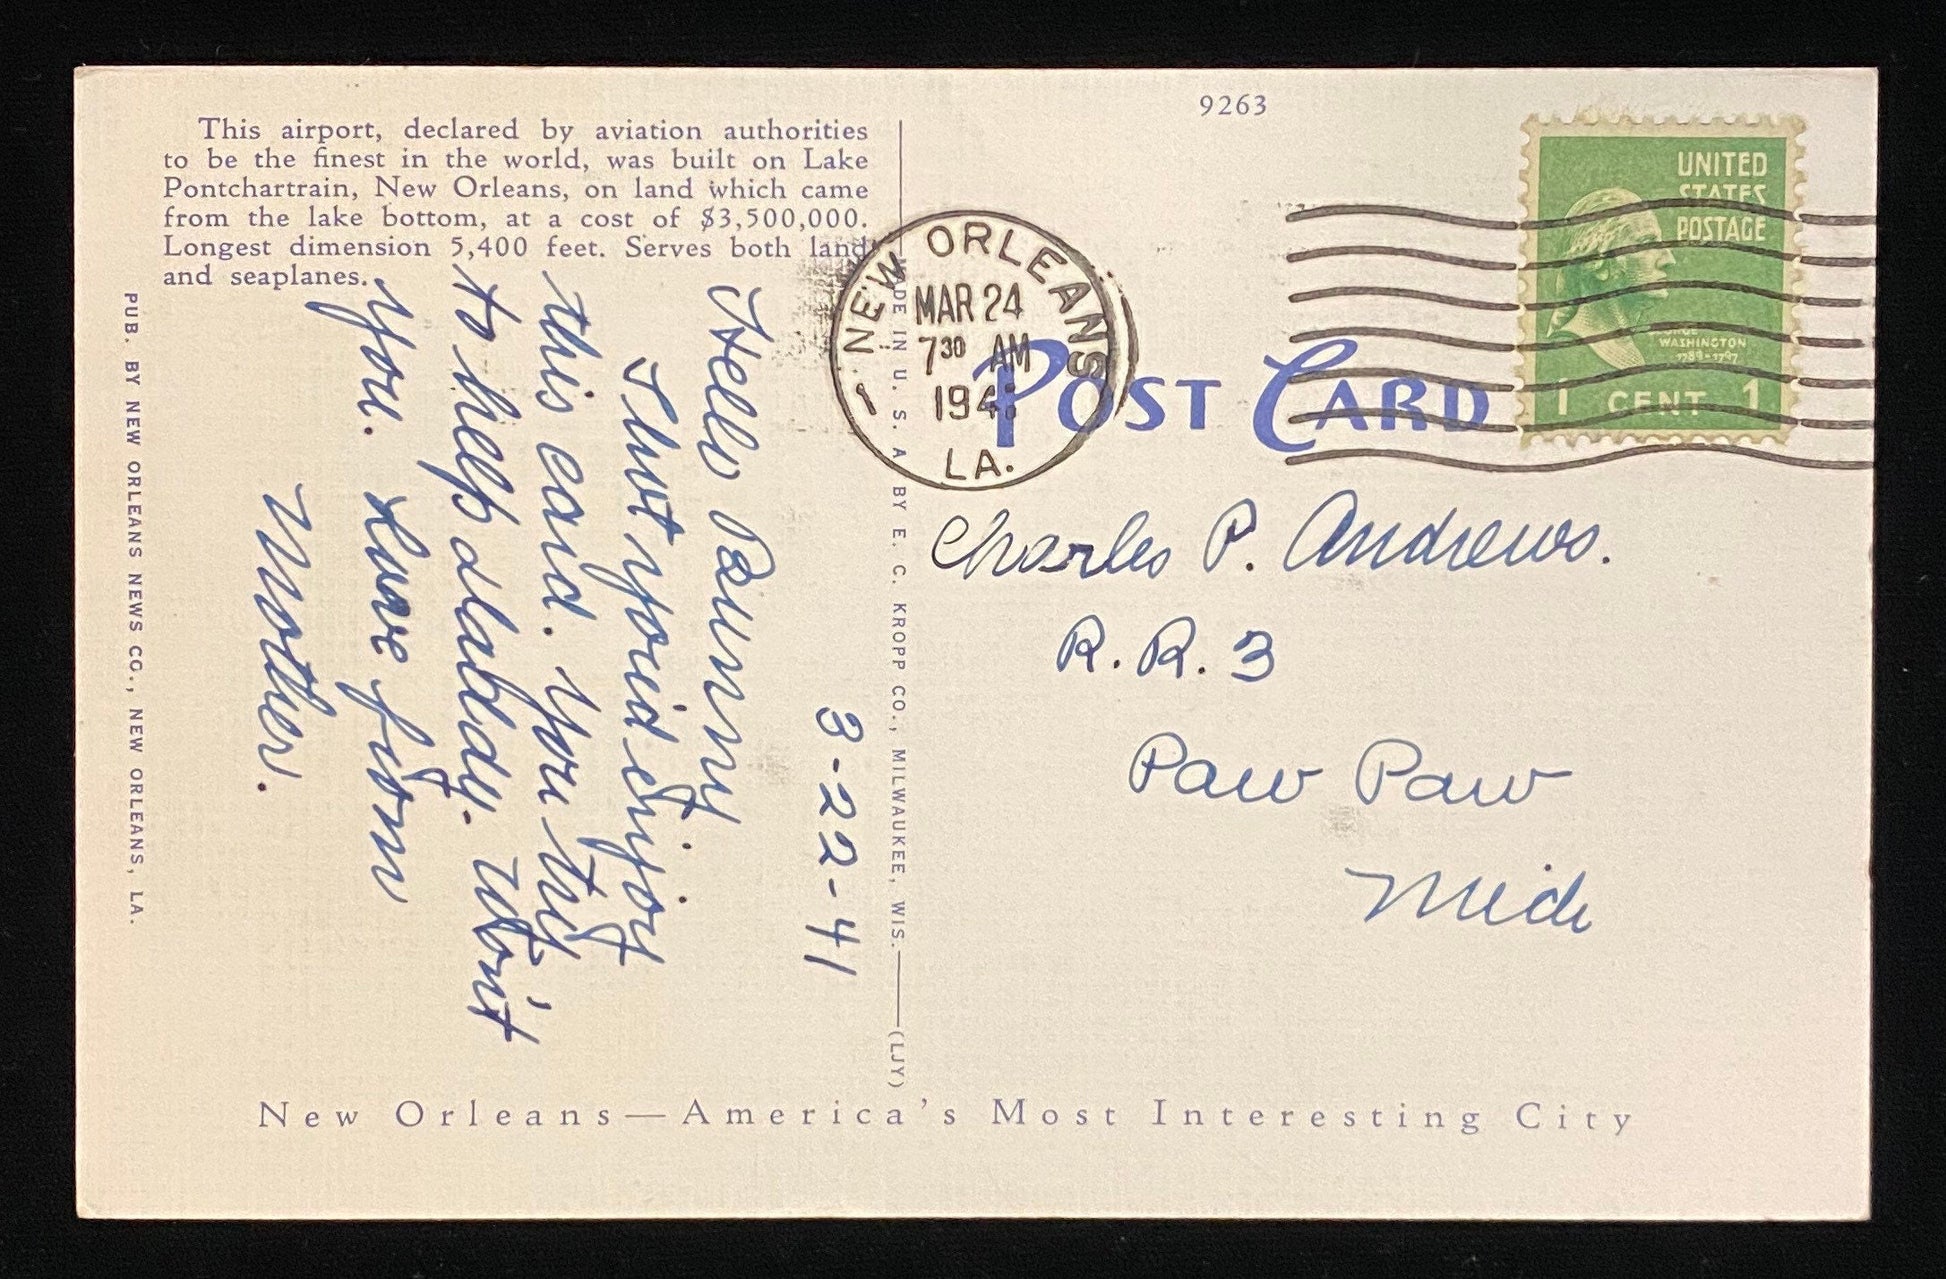 This airport, declared by aviation authorities
to be the finest in the world, was built on Lake
Pontchartrain, New Orleans, on land which came
from the lake bottom, at a cost of $3,500,000.
Longest dimension 5,400 feet. Serves both land
and seaplanes.
PUB. BY NEW ORLEANS NEWS CO., NEW ORLEANS, LA.
3-22-41
Hello Bunny
I bet you'd enjoy
this card. You try
to help daddy. Won't
you. Love from
Mother.
MADE IN U. S. A BY E. C. KROPP CO., MILWAUKEE, WIS.
(LJY)
9263
NEW ORLEANS
MAR 24
7 30 AM
194
LA.
POST CARD
UNITED
STATES
POSTAGE
WASHINGTON
1789-1797
1 CENT 1
Charles P. Andrews.
R. R. 3
Paw Paw
Mich
New Orleans—America's Most Interesting City